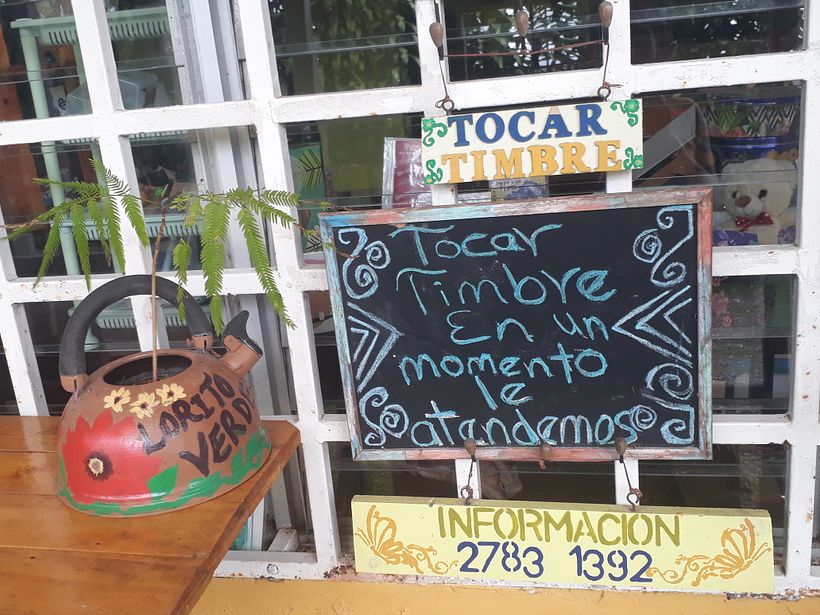 TOCAR
TIMBRE
Tocar
Timbre
En un
momento
le
atendemos
LORITO
VERDE
INFORMACION
2783 1392